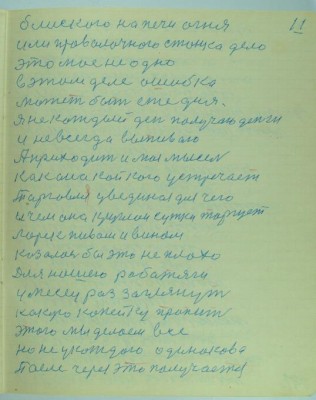 11
близкого на печи огня
или проволочного станка дело
это мое не одно
в этом деле ошибка
может быт сте дня.
я не каждый ден получаю денги
и не всегда выпиваю
А приходит и мая мысел
как она кой кого устречает
Тарговля уведина для чего
и чем она круглаи сутки таргует
море пивам и винам
казалас бы это не плохо
Для нашего работяги
у месец раз заглянут
как то копейку пропит
этого мы делаем все
но не у каждого одинакова
После через это получается